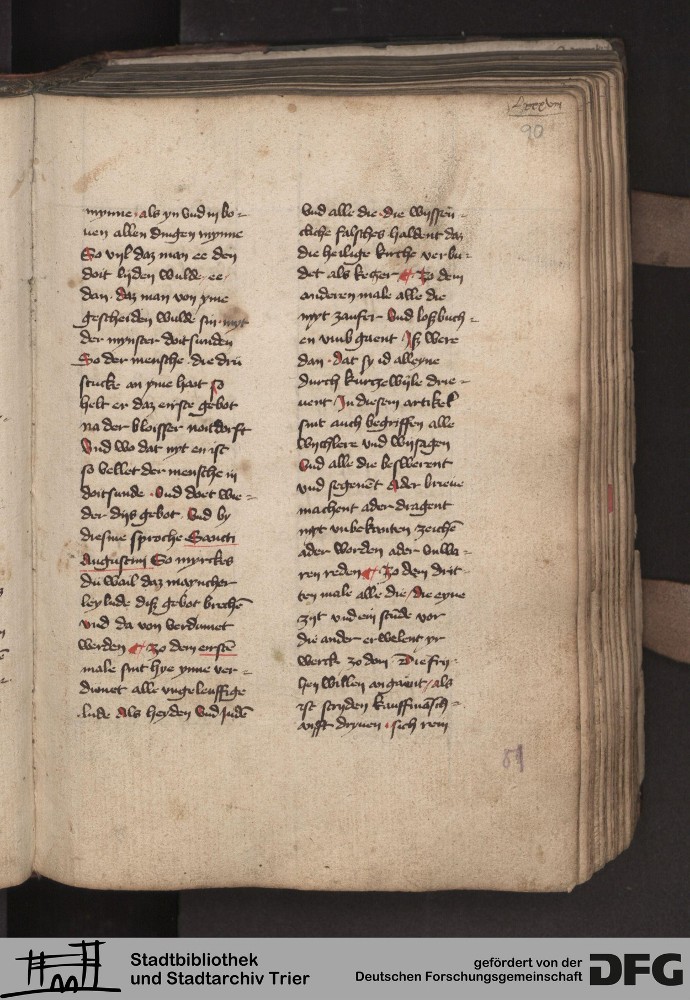 90
mynne · als yn vnd in bo-
uen allen dingen mynne
So vyl daz man ee den
doit lyden wulde · ee
dan · daz man von yme
gescheiden wulde sin · myt
der mynster doit sunden
So der mensche · die dru
stucke an yme hait so
helt er daz erste gebot
na der bloisser noitdorft
Vnd wo dat nyt en ist
so vellet der mensche in
doitsunde · Vnd doet wie-
der diß gebot · Vnd by
diesme sproche Sancti
Augustini So myrckes
du wail daz mancher
ley lude diß gebot brechen
vnd da von verdomet
werden · zo dem ersten
male sint hye ynne ver-
dumet alle vngeleuffige
lude Als heyden Vnd Juden
Vnd alle die · die wyssen-
cliche falsches haldent daz
die heilige kirche verbu-
det als ketzer · Zo dem
anderen male alle die
myt zaufer · Vnd loßbuch-
en vmb gaent · Iß were
dan · Dat sy id alleyne
durch kurtzewyle drie-
uent / In diesem artikel
sint auch begriffen alle
wychlere vnd wyssagen
Vnd alle die beswerent
vnd segenent Ader brieue
machent ader dragent
myt vnbekanten zeichen
ader worden ader
ren reden · Zo dem drit-
ten male alle die / die eyne
zyt vnd ein stude vor
die ander erwelent yr
werck zo don · Die fry-
hen willen an gaent / als
ist stryden kauffmansch-
afft dryuen · sich rem
81
Stadtbibliothek
und Stadtarchiv Trier
gefördert von der
Deutschen Forschungsgemeinschaft
DFG